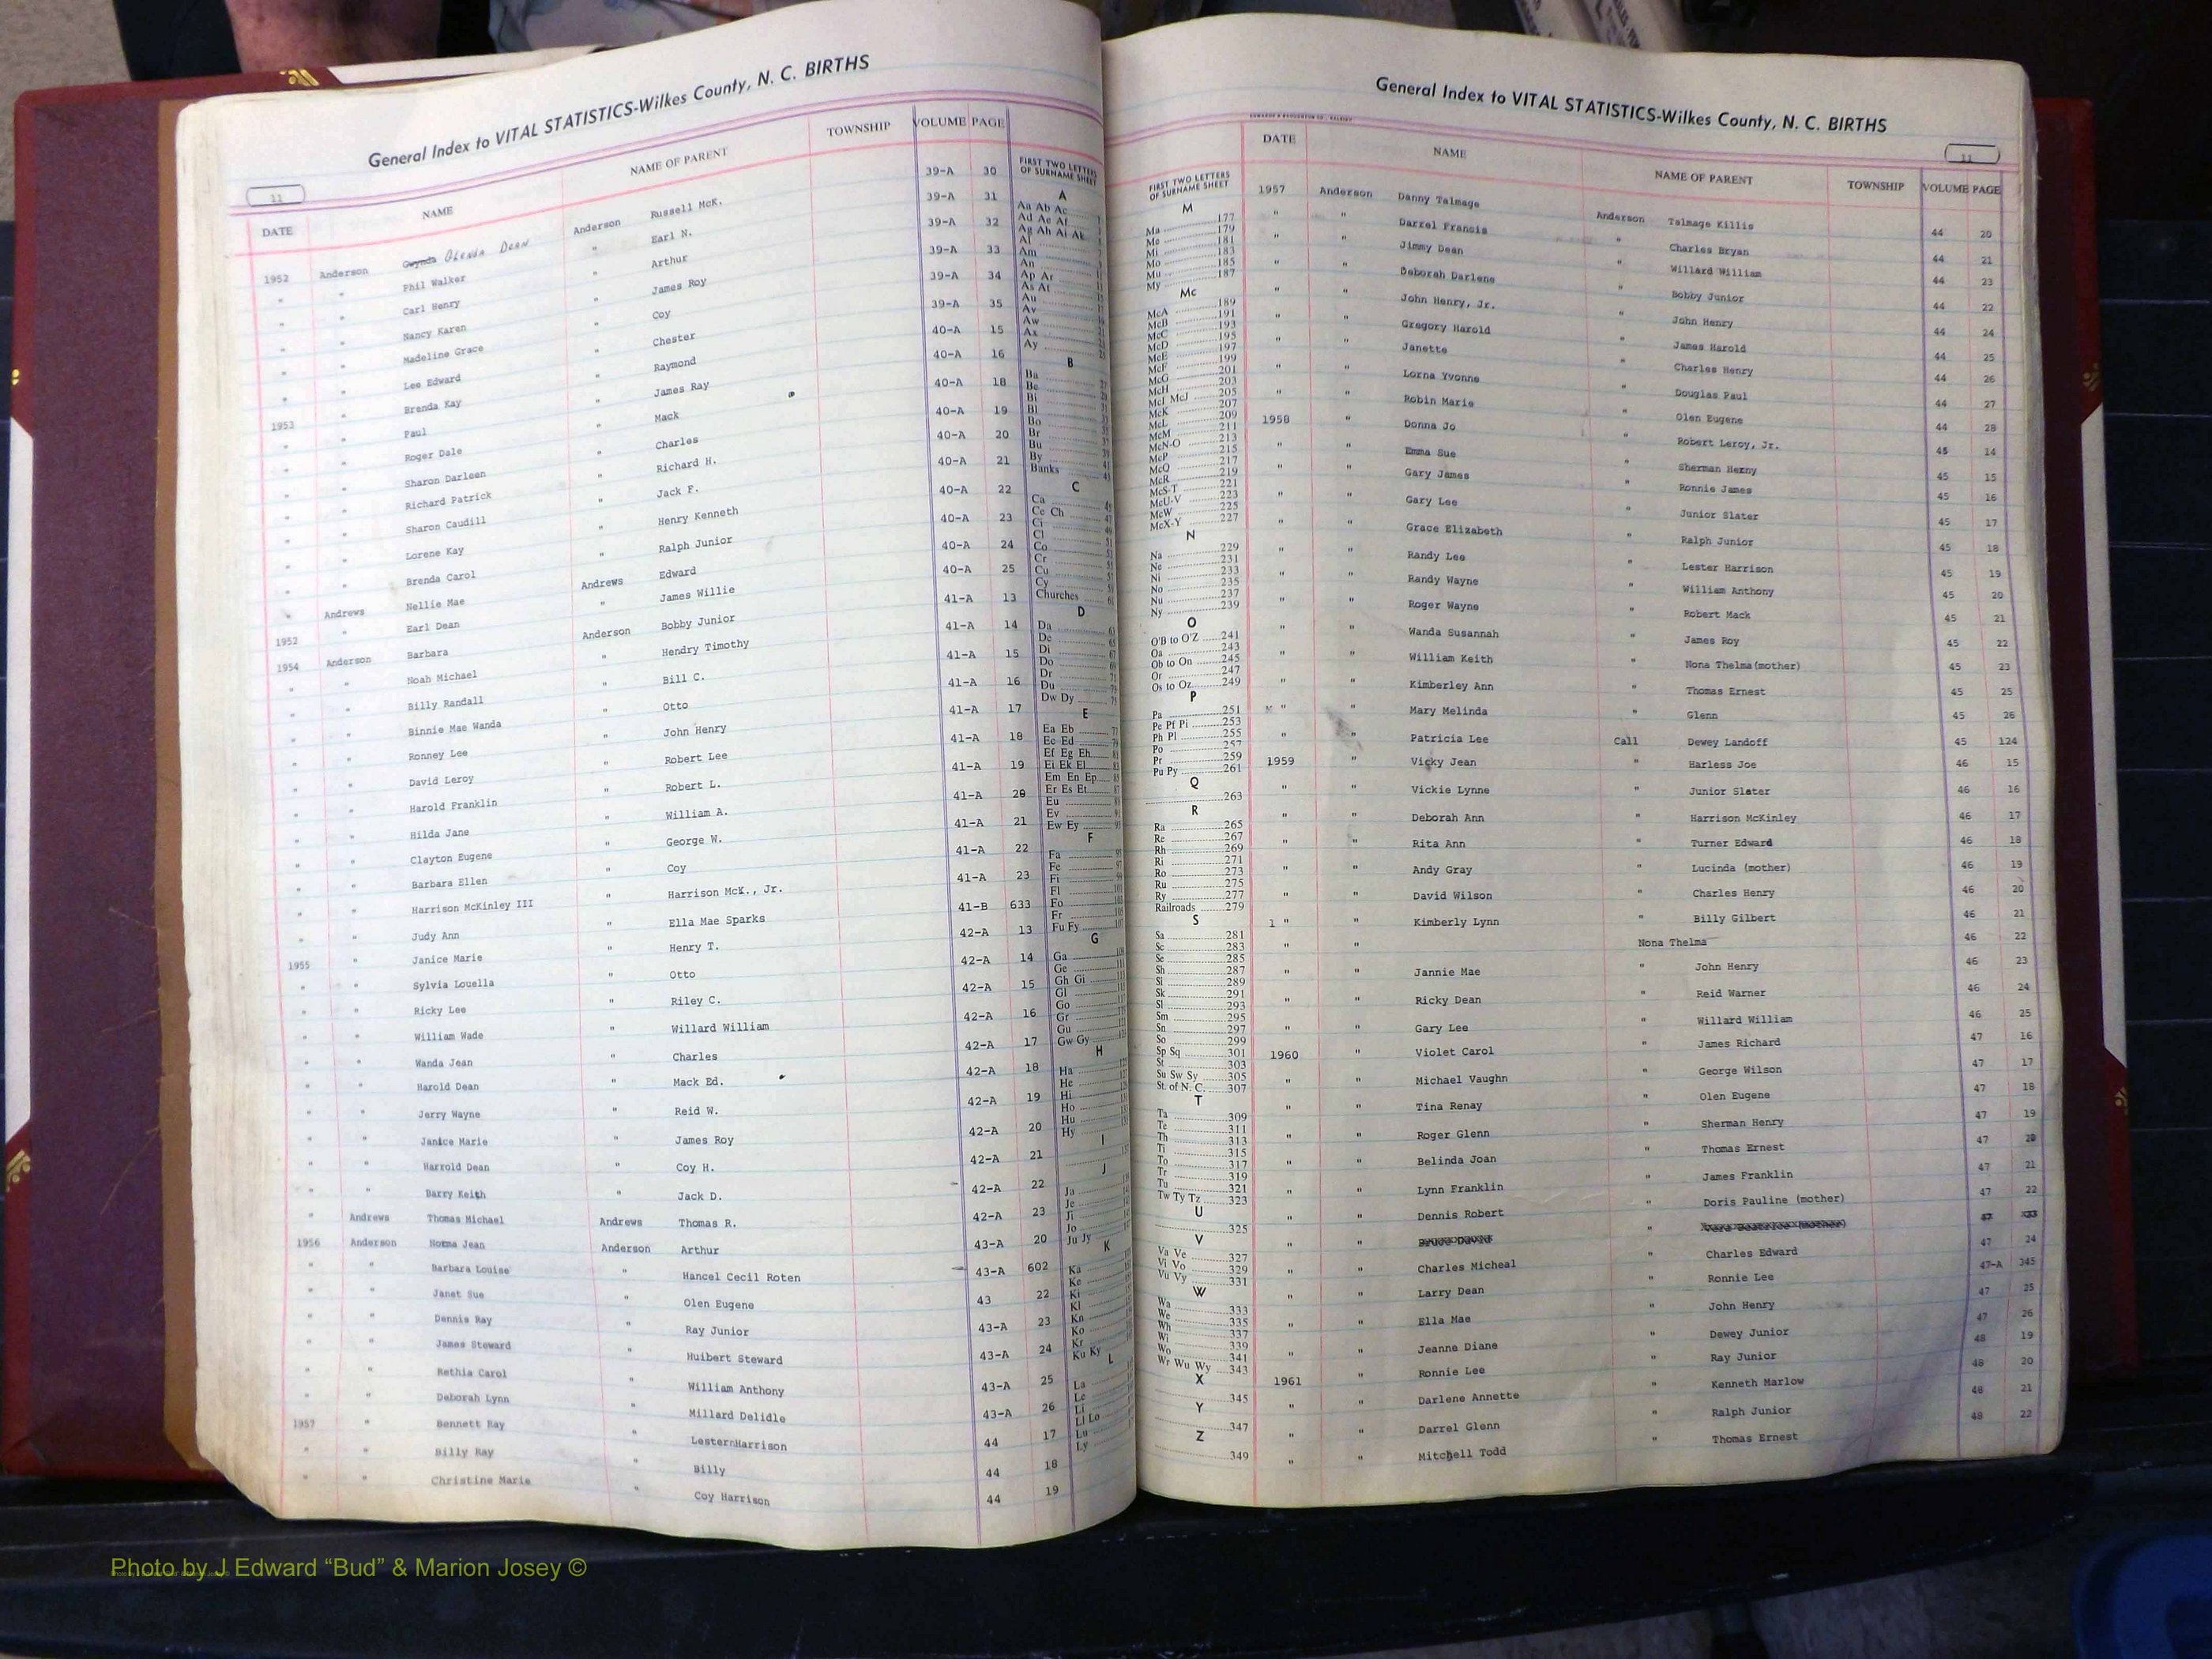 General Index to VITAL STATISTICS-Wilkes County, N. C. BIRTHS
11
DATE NAME NAME OF PARENT TOWNSHIP VOLUME PAGE
1952 Anderson Gwynda GLENDA DEAN Anderson Russell McK. 39-A 30
" " Phil Walker " Earl N. 39-A 31
" " Carl Henry " Arthur 39-A 32
" " Nancy Karen " James Roy 39-A 33
" " Madeline Grace " Coy 39-A 34
" " Lee Edward " Chester 39-A 35
1953 " Brenda Kay " Raymond 40-A 15
" " Paul " James Ray 40-A 16
" " Roger Dale " Mack 40-A 18
" " Sharon Darleen " Charles 40-A 19
" " Richard Patrick " Richard H. 40-A 20
" " Sharon Caudill " Jack F. 40-A 21
" " Lorene Kay " Henry Kenneth 40-A 22
" " Brenda Carol " Ralph Junior 40-A 23
" Andrews Nellie Mae Andrews Edward 40-A 24
1952 " Earl Dean " James Willie 40-A 25
1954 Anderson Barbara Anderson Bobby Junior 41-A 13
" " Noah Michael " Hendry Timothy 41-A 14
" " Billy Randall " Bill C. 41-A 15
" " Binnie Mae Wanda " Otto 41-A 16
" " Ronney Lee " John Henry 41-A 17
" " David Leroy " Robert Lee 41-A 18
" " Harold Franklin " Robert L. 41-A 19
" " Hilda Jane " William A. 41-A 20
" " Clayton Eugene " George W. 41-A 21
" " Barbara Ellen " Coy 41-A 22
" " Harrison McKinley III " Harrison McK., Jr. 41-A 23
" " Judy Ann " Ella Mae Sparks 41-B 633
1955 " Janice Marie " Henry T. 42-A 13
" " Sylvia Louella " Otto 42-A 14
" " Ricky Lee " Riley C. 42-A 15
" " William Wade " Willard William 42-A 16
" " Wanda Jean " Charles 42-A 17
" " Harold Dean " Mack Ed. 42-A 18
" " Jerry Wayne " Reid W. 42-A 19
" " Janice Marie " James Roy 42-A 20
" " Harrold Dean " Coy H. 42-A 21
" " Barry Keith " Jack D. 42-A 22
" Andrews Thomas Michael Andrews Thomas R. 42-A 23
1956 Anderson Norma Jean Anderson Arthur 43-A 20
" " Barbara Louise " Hancel Cecil Roten 43-A 602
" " Janet Sue " Olen Eugene 43 22
" " Dennis Ray " Ray Junior 43-A 23
" " James Steward " Huibert Steward 43-A 24
" " Rethia Carol " William Anthony 43-A 25
" " Deborah Lynn " Millard Delidle 43-A 26
1957 " Bennett Ray " LesternHarrison 44 17
" " Billy Ray " Billy 44 18
" " Christine Marie " Coy Harrison 44 19
FIRST TWO LETTERS
OF SURNAME SHEET
A
Aa Ab Ac
Ad Ae Af
Ag Ah Ai Ak
Al
Am
An
Ap Ar
As At
Au
Av
Aw
Ax
Ay
B
Ba
Be
Bi
Bl
Bo
Br
Bu
By
Banks
C
Ca
Ce Ch
Ci
Cl
Co
Cr
Cu
Cy
Churches
D
Da
De
Di
Do
Dr
Du
Dw Dy
E
Ea Eb
Ec Ed
Ef Eg Eh
Ei Ek El
Em En Ep
Er Es Et
Eu
Ev
Ew Ey
F
Fa
Fe
Fi
Fl
Fo
Fr
Fu Fy
G
Ga
Ge
Gh Gi
Gl
Go
Gr
Gu
Gw Gy
H
Ha
He
Hi
Ho
Hu
Hy
I
J
Ja
Je
Ji
Jo
Ju Jy
K
Ka
Ke
Ki
Kl
Kn
Ko
Kr
Ku Ky
L
La
Le
Li
Ll Lo
Lu
Ly
General Index to VITAL STATISTICS-Wilkes County, N. C. BIRTHS
11
FIRST TWO LETTERS
OF SURNAME SHEET
M
Ma 177
Me 179
Mi 181
Mo 183
Mu 185
My 187
Mc
McA 189
McB 191
McC 193
McD 195
McE 197
McF 199
McG 201
McH 203
McI McJ 205
McK 207
McL 209
McM 211
McN-O 213
McP 215
McQ 217
McR 219
McS-T 221
McU-V 223
McW 225
McX-Y 227
N
Na 229
Ne 231
Ni 233
No 235
Nu 237
Ny 239
O
O'B to O'Z 241
Oa 243
Ob to On 245
Or 247
Os to Oz 249
P
Pa 251
Pe Pf Pi 253
Ph Pl 255
Po 257
Pr 259
Pu Py 261
Q
263
R
Ra 265
Re 267
Rh 269
Ri 271
Ro 273
Ru 275
Ry 277
Railroads 279
S
Sa 281
Sc 283
Se 285
Sh 287
Si 289
Sk 291
Sl 293
Sm 295
Sn 297
So 299
Sp Sq 301
St 303
Su Sw Sy 305
St. of N. C. 307
T
Ta 309
Te 311
Th 313
Ti 315
To 317
Tr 319
Tu 321
Tw Ty Tz 323
U
325
V
Va Ve 327
Vi Vo 329
Vu Vy 331
W
Wa 333
We 335
Wh 337
Wi 339
Wo 341
Wr Wu Wy 343
X
345
Y
347
Z
349
DATE NAME NAME OF PARENT TOWNSHIP VOLUME PAGE
1957 Anderson Danny Talmage Anderson Talmage Killis 44 20
" " Darrel Francis " Charles Bryan 44 21
" " Jimmy Dean " Willard William 44 23
" " Deborah Darlene " Bobby Junior 44 22
" " John Henry, Jr. " John Henry 44 24
" " Gregory Harold James Harold 44 25
" " Janette " Charles Henry 44 26
" " Lorna Yvonne " Douglas Paul 44 27
" " Robin Marie " Olen Eugene 44 28
1958 " Donna Jo " Robert Leroy, Jr. 45 14
" " Emma Sue " Sherman Herny 45 15
" " Gary James " Ronnie James 45 16
" " Gary Lee " Junior Slater 45 17
" " Grace Elizabeth " Ralph Junior 45 18
" " Randy Lee " Lester Harrison 45 19
" " Randy Wayne " William Anthony 45 20
" " Roger Wayne " Robert Mack 45 21
" " Wanda Susannah " James Roy 45 22
" " William Keith " Nona Thelma(mother) 45 23
" " Kimberley Ann " Thomas Ernest 45 25
" " Mary Melinda " Glenn 45 26
" " Patricia Lee Call Dewey Landoff 45 124
1959 " Vicky Jean " Harless Joe 46 15
" " Vickie Lynne " Junior Slater 46 16
" " Deborah Ann " Harrison McKinley 46 17
" " Rita Ann " Turner Edward 46 18
" " Andy Gray " Lucinda (mother) 46 19
" " David Wilson " Charles Henry 46 20
1 " " Kimberly Lynn " Billy Gilbert 46 21
" " Nona Thelma 46 22
" " Jannie Mae " John Henry 46 23
" " Ricky Dean " Reid Warner 46 24
" " Gary Lee " Willard William 46 25
1960 " Violet Carol " James Richard 47 16
" " Michael Vaughn " George Wilson 47 17
" " Tina Renay " Olen Eugene 47 18
" " Roger Glenn " Sherman Henry 47 19
" " Belinda Joan " Thomas Ernest 47 20
" " Lynn Franklin " James Franklin 47 21
" " Dennis Robert " Doris Pauline (mother) 47 22
" "
" " Charles Micheal " Charles Edward 47 24
" " Larry Dean " Ronnie Lee 47-A 345
" " Ella Mae " John Henry 47 25
" " Jeanne Diane " Dewey Junior 47 26
1961 " Ronnie Lee " Ray Junior 48 19
" " Darlene Annette " Kenneth Marlow 48 20
" " Darrel Glenn " Ralph Junior 48 21
" " Mitchell Todd " Thomas Ernest 48 22
Photo by J Edward “Bud” & Marion Josey ©